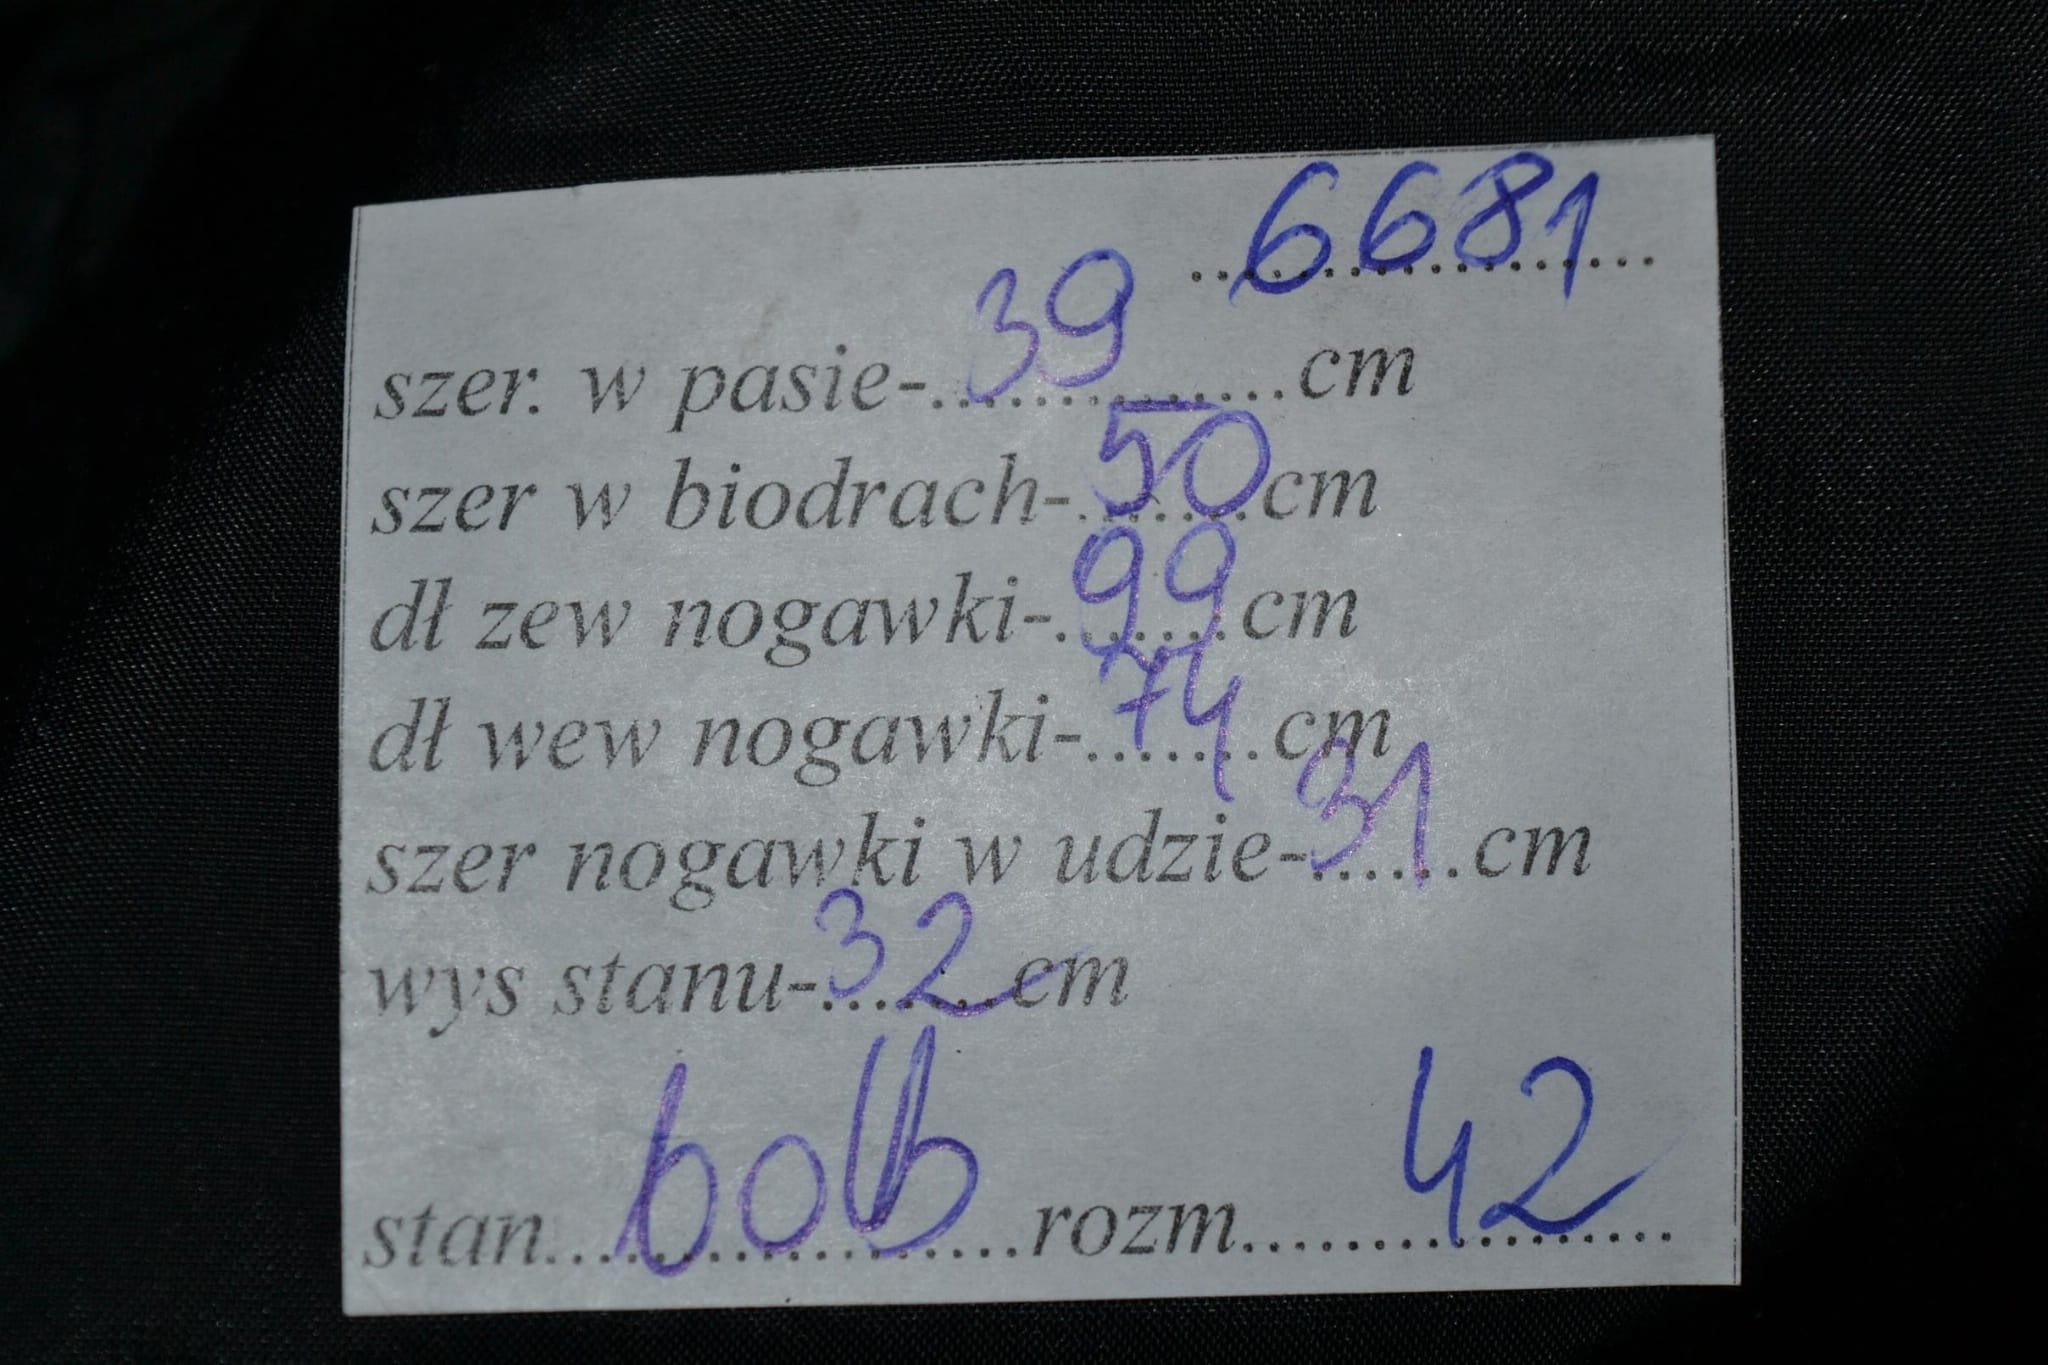 6681
szer. w pasie-39cm
szer w biodrach-50cm
dł zew nogawki-99cm
dł wew nogawki-74cm
szer nogawki w udzie-31cm
wys stanu-32cm
stan rozm 42